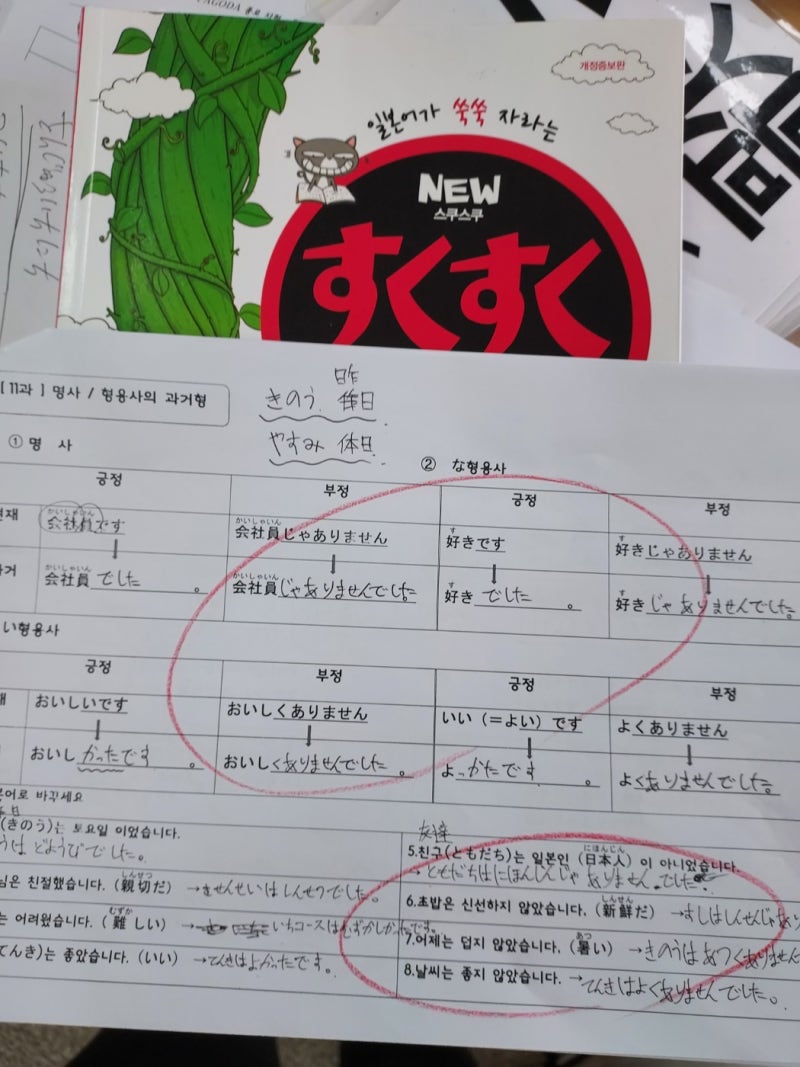 PAGODA 종로
개정증보판
일본어가 쑥쑥 자라는
NEW
스쿠스쿠
すくすく
[11과] 명사 / 형용사의 과거형
昨
きのう 昨日
やすみ 休日
① 명 사
② な형용사
긍정 부정 긍정 부정
현재
かいしゃいん かいしゃいん す す
会社員です 会社員じゃありません 好きです 好きじゃありません
かいしゃいん かいしゃいん す す
会社員でした。 会社員じゃありませんでした。 好きでした。 好きじゃありませんでした。
い형용사
긍정 부정 긍정 부정
おいしいです おいしくありません いい（=よい）です よくありません
おいしかったです。 おいしくありませんでした。 よっかたです。 よくありませんでした。
바꾸세요
(きのう)는 토요일 이었습니다.
はどようびでした。
友達
にほんじん
5.친구(ともだち)는 일본인 (日本人) 이 아니었습니다.
→ ともだちはにほんじんじゃありませんでした
しんせつ
님은 친절했습니다. (親切だ) →
せんせいはしんせつでした。
しんせん
6.초밥은 신선하지 않았습니다. (新鮮だ) →すしはしんせんじゃあり
むずか
는 어려웠습니다. (難しい) →
いちコースはむずかしかたです。
あつ
7.어제는 덥지 않았습니다. (暑い) →きのうはあつくありません
てんき)는 좋았습니다. (いい) →てんきはよかったです。
8.날씨는 좋지 않았습니다. →てんきはよくありませんでした。